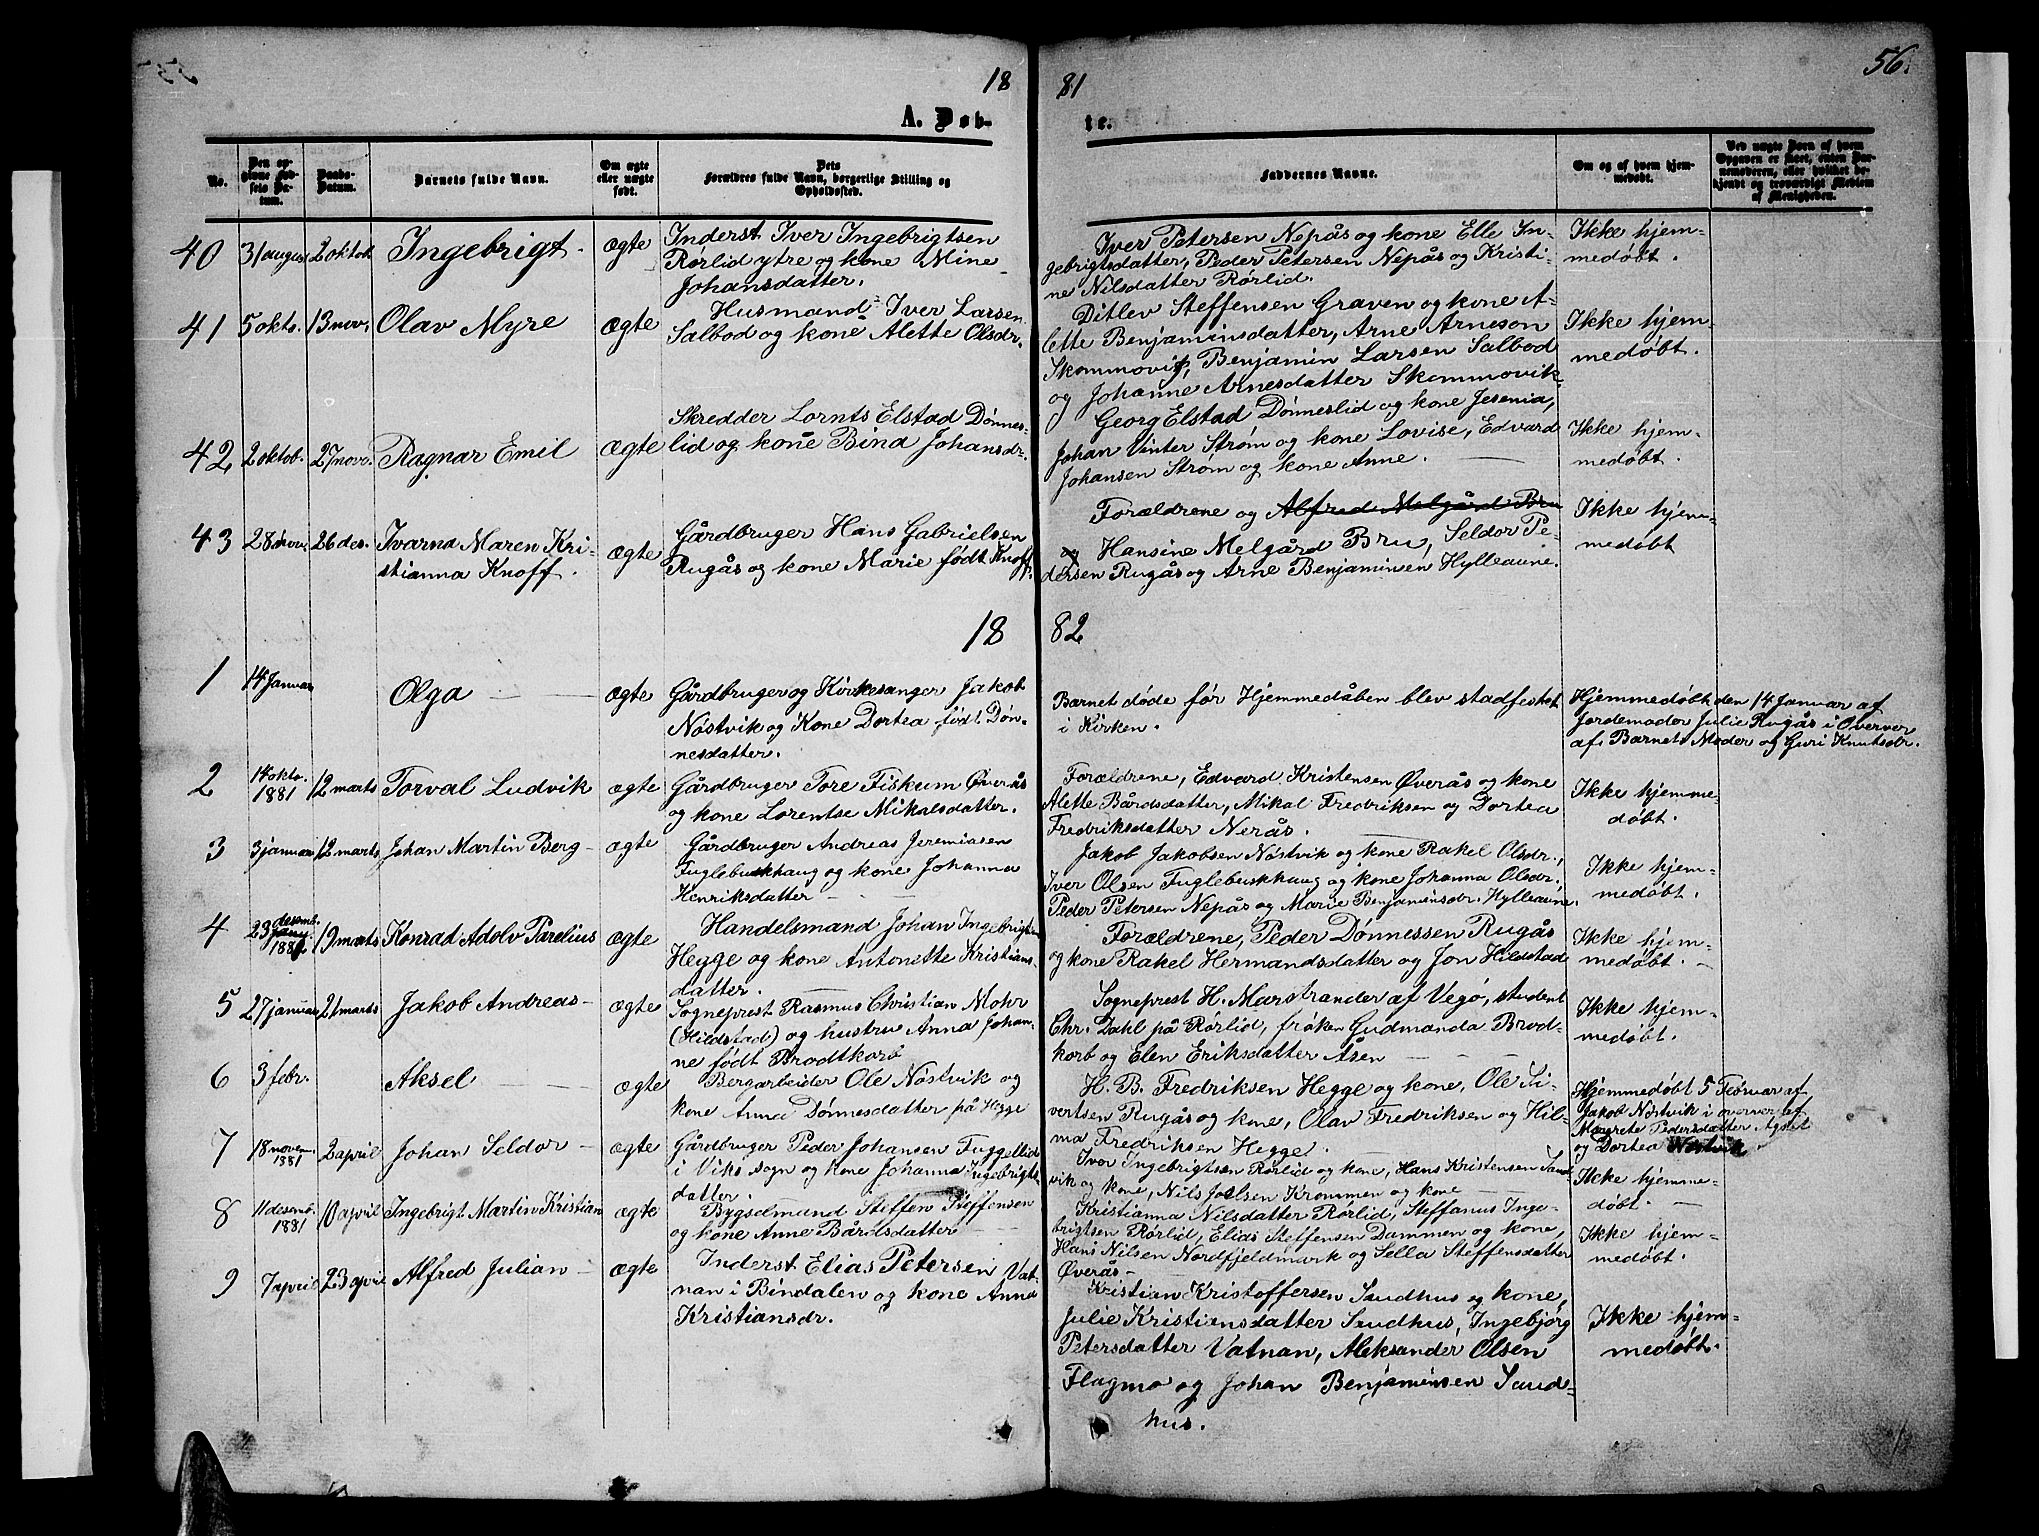 18 81 56.
A. Døb- te.
No.
Den op-
givne Fød-
sels Da-
tum.
Daabs-
Datum.
Barnets fulde Navn.
Om ægte
eller uægte
født.
Dets
Forældres fulde Navn, borgerlige Stilling og
Opholdssted.
Faddernes Navne.
Om og af hvem hjem-
medøbt.
Ved uægte Børn af hvem
Opgaven er skeet, enten Bar-
nemoderen, eller hvilket be-
kjendt og troværdigt Medlem
af Menigheden.
40 31 august 2 oktob. Ingebrigt ægte
Inderst Iver Ingebrigtsen
Rørlid ytre og kone Mine
Johansdatter.
Iver Petersen Nepås og kone Elle In-
gebrigtsdatter, Peder Petersen Nepås og Kristi-
ne Nilsdatter Rørlid.
Ikke hjem-
medøbt.
41 5 okto. 13 nov. Olav Myre ægte
Husmand Iver Larsen
Salbod og kone Alette Olsdr.
Ditlev Steffensen Graven og kone A-
lette Benjaminsdatter, Arne Arneson
Skommovik, Benjamin Larsen Salbod
og Johanne Arnesdatter Skommovik.
Ikke hjem-
medøbt.
42 2 oktob. 27 novr. Ragnar Emil ægte
Skredder Lornts Elstad Dønnes-
lid og kone Bina Johansdr.
Georg Elstad Dønneslid og kone Jesenia,
Johan Vinter Strøm og kone Lovise, Edvard
Johansen Strøm og kone Anne.
Ikke hjem-
medøbt.
43 28 nov. 26 des. Ivarna Maren Kri-
stianna Knoff. ægte
Gårdbruger Hans Gabrielsen
Rugås og kone Marie født Knoff.
Forældrene og Alfred Melgård Bru
og Hansine Melgård Bru, Seldor Pe-
dersen Rugås og Arne Benjaminsen Hylleaune.
Ikke hjem-
medøbt
18 82
1 14 Januar Olga ægte
Gårdbruger og Kirkesanger Jakob
Nøstvik og Kone Dortea født Døn-
nesdatter.
Barnet døde før Hjemmedåben blev stadfestet
i Kirken.
Hjemmedøbt den 14 Januar af
Jordemoder Julie Rugås i Overvær
af Barnets Moder og Guri Knutsdr.
2 14 okto.
1881 12 marts Torval Ludvik ægte
Gårdbruger Tore Fiskum Øverås
og kone Lorentse Mikalsdatter.
Forældrene, Edvard Kristensen Øverås og kone
Alette Bårdsdatter, Mikal Fredriksen og Dortea
Fredriksdatter Nerås.
Ikke hjemme-
døbt.
3 3 januar 12 marts Johan Martin Berg ægte
Gårdbruger Andreas Jeremiasen
Fuglebuskhaug og kone Johanna
Henriksdatter
Jakob Jakobsen Nøstvik og kone Rakel Olsdr.,
Iver Olsen Fuglebuskhaug og kone Johanna Olsdr.,
Peder Petersen Nepås og Marie Benjaminsdr. Hylleaune.
Ikke hjem-
medøbt.
4 23 desemb.
1881 19 marts Konrad Adolv Parelius ægte
Handelsmand Johan Ingebrigtsen
Hegge og kone Antonette Kristians-
datter.
Forældrene, Peder Dønnessen Rugås
og kone Rakel Hermandsdatter og Jon Hildstad
Ikke hjem-
medøbt.
5 27 januar 21 marts Jakob Andreas ægte
Sogneprest Rasmus Christian Mohr
(Hildstad) og hustru Anna Johan-
ne født Brodtkorb
Sogneprest H. Marstrander af Vegø, student
Chr. Dahl på Rørlid, frøken Gudmanda Brodt-
korb og Elen Eriksdatter Åsen
Ikke hjem-
medøbt.
6 3 febr. Aksel ægte
Bergarbeider Ole Nøstvik og
kone Anna Dønnesdatter på Hegge
H. B. Fredriksen Hegge og kone, Ole Si-
vertsen Rugås og kone, Olav Fredriksen og Hil-
ma Fredriksen Hegge.
Hjemmedøbt 5 Februar af
Jakob Nøstvik i overvær af
Margrete Pedersdatter
og Dortea Nøstvik
7 18 novem.
1881 2 april Johan Seldor ægte
Gårdbruger Peder Johansen Fuggellid
i Viks sogn og kone Johanna Ingebrigts-
datter.
Iver Ingebrigtsen Rørlid og kone, Hans Kristensen Sand-
vik og kone, Nils Joelsen Krommen og kone
Ikke hjemme-
døbt.
8 11 desemb.
1881 10 april Ingebrigt Martin Kristian ægte
Bygselmand Steffen Steffensen
og kone Anne Bårdsdatter
Kristianna Nilsdatter Rørlid, Steffanus Inge-
brigtsen Rørlid, Elias Steffensen Dammen og kone,
Hans Nilsen Nordfjeldmark og Sella Steffensdatter
Øverås
Ikke hjem-
medøbt.
9 7 april 23 april Alfred Julian ægte
Inderst Elias Petersen Vat-
nan i Bindalen og kone Anna
Kristiansdr.
Kristian Kristoffersen Sundhus og kone,
Julie Kristiensdatter Sundhus, Ingebjørg
Petersdatter Vatnan, Aleksander Olsen
Flagmo og Johan Benjaminsen Sund-
hus.
Ikke hjem-
medøbt.